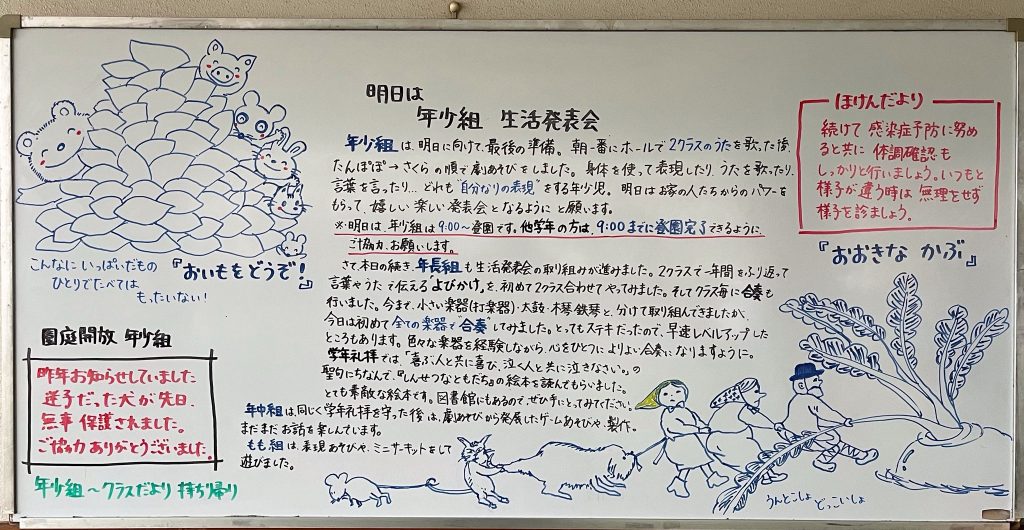 明日は
年少組 生活発表会
年少組は、明日に向けて、最後の準備。朝一番にホールで2クラスのうたを歌った後、
たんぽぽ→さくらの順で劇あそびをしました。身体を使って表現したり、うたを歌ったり、
言葉を言ったり…どれも"自分なりの表現"をする年少児。明日はお家の人たちからのパワーを
もらって、嬉しい楽しい発表会となるようにと願います。
※明日は、年少組は9:00〜登園です。他学年の方は、9:00までに登園完了できるように、
ご協力、お願いします。
さて、本日の続き、年長組も生活発表会の取り組みが進みました。2クラスで一年間をふり返って
言葉やうたで伝える"よびかけ"を、初めて2クラス合わせてやってみました。そしてクラス毎に合奏も
行いました。今まで、小さい楽器(打楽器)・太鼓・木琴・鉄琴と、分けて取り組んできましたが、
今日は初めて全ての楽器で"合奏"してみました。とってもステキだったので、早速レベルアップした
ところもあります。色々な楽器を経験しながら、心をひとつによりよい合奏になりますように。
学年礼拝では、「喜ぶ人と共に喜び、泣く人と共に泣きなさい。」の
聖句にちなんで、『しんせつなともだち』の絵本を読んでもらいました。
とても素敵な絵本です。図書館にもあるので、ぜひ手にとってみてください。
年中組は、同じく学年礼拝を守った後は、劇あそびから発展したゲームあそびや、製作。
まだまだお話を楽しんでいます。
もも組は、表現あそびや、ミニサーキットをして
遊びました。
こんなにいっぱいだもの
ひとりでたべては
もったいない!
『おいもをどうぞ!』
園庭開放 年少組
昨年お知らせしていました
迷子だった犬が先日、
無事 保護されました。
ご協力ありがとうございました。
年少組〜クラスだより 持ち帰り
ほけんだより
続けて 感染症予防に努め
ると共に 体調確認も
しっかりと行いましょう。いつもと
様子が違う時は 無理をせず
様子を診ましょう。
『おおきな かぶ』
うんとこしょ
どっこいしょ